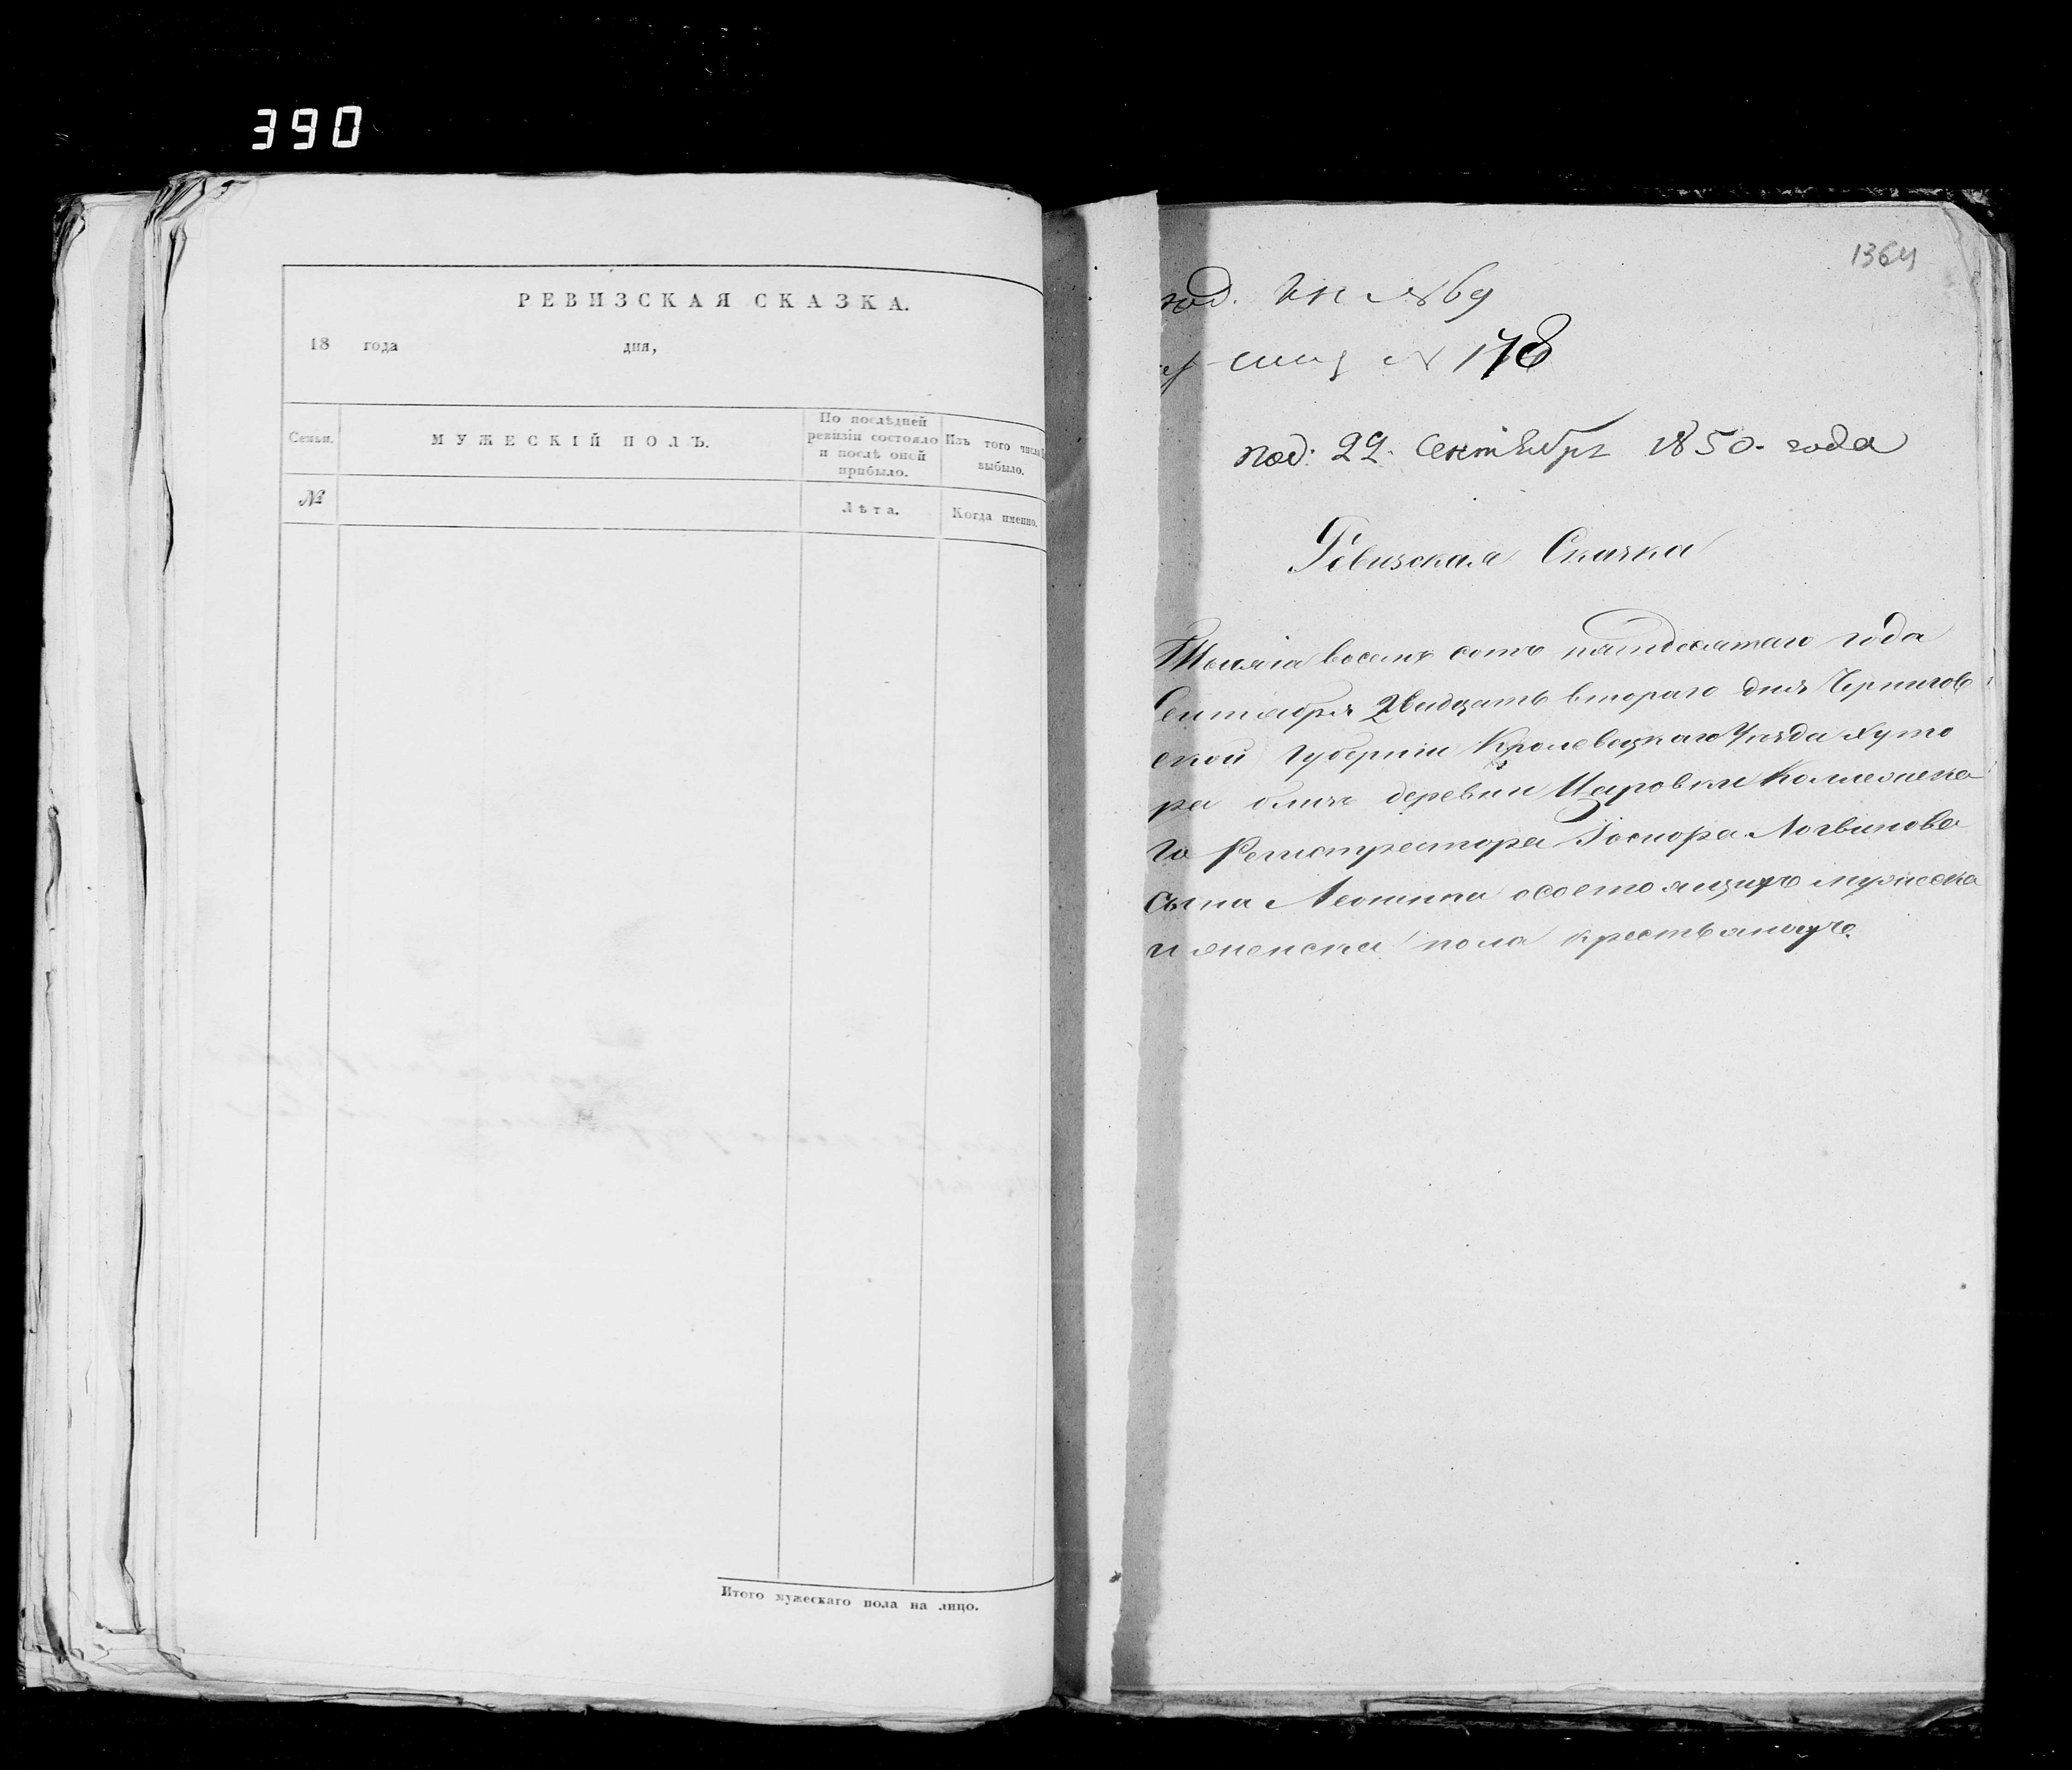 390
РЕВИЗСКАЯ СКАЗКА.
18 года дня,
Семьи.
МУЖЕСКІЙ ПОЛЪ.
По послѣдней ревизіи состояло и послѣ оной прибыло.
Изъ того числа выбыло.
№
Лѣта.
Когда именно.
Итого мужескаго пола на лицо.
1364
№ 69
№ 178
под: 22 Сентября 1850 года
Ревизская Сказка
Тысяча восемь сотъ пятдесятаго года
Сентября двадцать втораго дня Чернигов
ской губерніи Кролевецкаго Уезда хуто
ра близь деревни Царовки Колежска
го Регистратора Логвинова
сына Леошки осостоящихъ мужеска
и женска пола крестьянахъ.